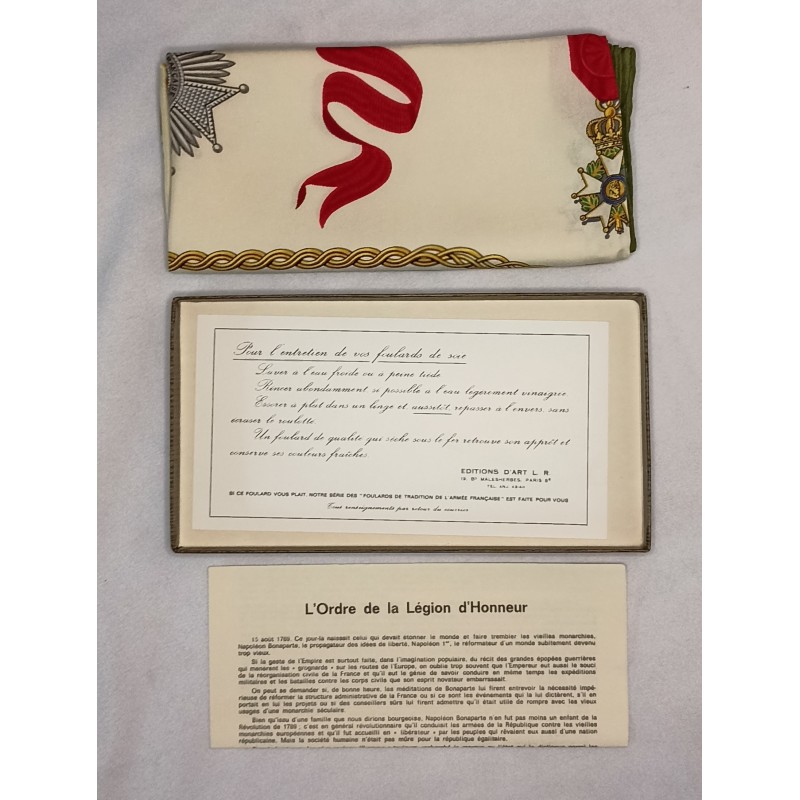 Pour l'entretien de vos foulards de soie
Laver à l'eau froide ou à peine tiède
Rincer abondamment si possible à l'eau legerement vinaigree
Essorer à plat dans un linge et aussitôt, repasser à l'envers, sans
ecraser le roulotte
Un foulard de qualite qui sèche sous le fer retrouve son apprêt et
conserve ses couleurs fraîches
EDITIONS D'ART L. R.
BD MALESHERBES, PARIS 8e
SI CE FOULARD VOUS PLAIT, NOTRE SÉRIE DES "FOULARDS DE TRADITION DE L'ARMÉE FRANÇAISE" EST FAITE POUR VOUS
Tous renseignements par retour du courrier
L'Ordre de la Légion d'Honneur
15 août 1769. Ce jour-là naissait celui qui devait étonner le monde et faire trembler les vieilles monarchies,
Napoléon Bonaparte, le propagateur des idées de liberté, Napoléon 1er, le réformateur d'un monde subitement devenu
trop vieux.
Si la geste de l'Empire est surtout faite, dans l'imagination populaire, du récit des grandes épopées guerrières
qui menèrent les « grognards » sur les routes de l'Europe, on oublie trop souvent que l'Empereur eut aussi le souci
de la réorganisation civile de la France et qu'il eut le génie de savoir conduire en même temps les expéditions
militaires et les batailles contre les corps civils que son esprit novateur embarrassait.
On peut se demander si, de bonne heure, les méditations de Bonaparte lui firent entrevoir la nécessité impé-
rieuse de réformer la structure administrative de la France ou si ce sont les événements qui la lui dictèrent, s'il en
portait en lui les projets ou si des conseillers sûrs lui firent admettre qu'il était utile de rompre avec les vieux
usages d'une monarchie séculaire.
Bien qu'issu d'une famille que nous dirions bourgeoise, Napoléon Bonaparte n'en fut pas moins un enfant de la
Révolution de 1789 ; c'est en général révolutionnaire qu'il conduisit les armées de la République contre les vieilles
monarchies européennes et qu'il fut accueilli en « libérateur » par les peuples qui rêvaient eux aussi d'une nation
républicaine. Mais la société humaine n'était pas mûre pour la république égalitaire.